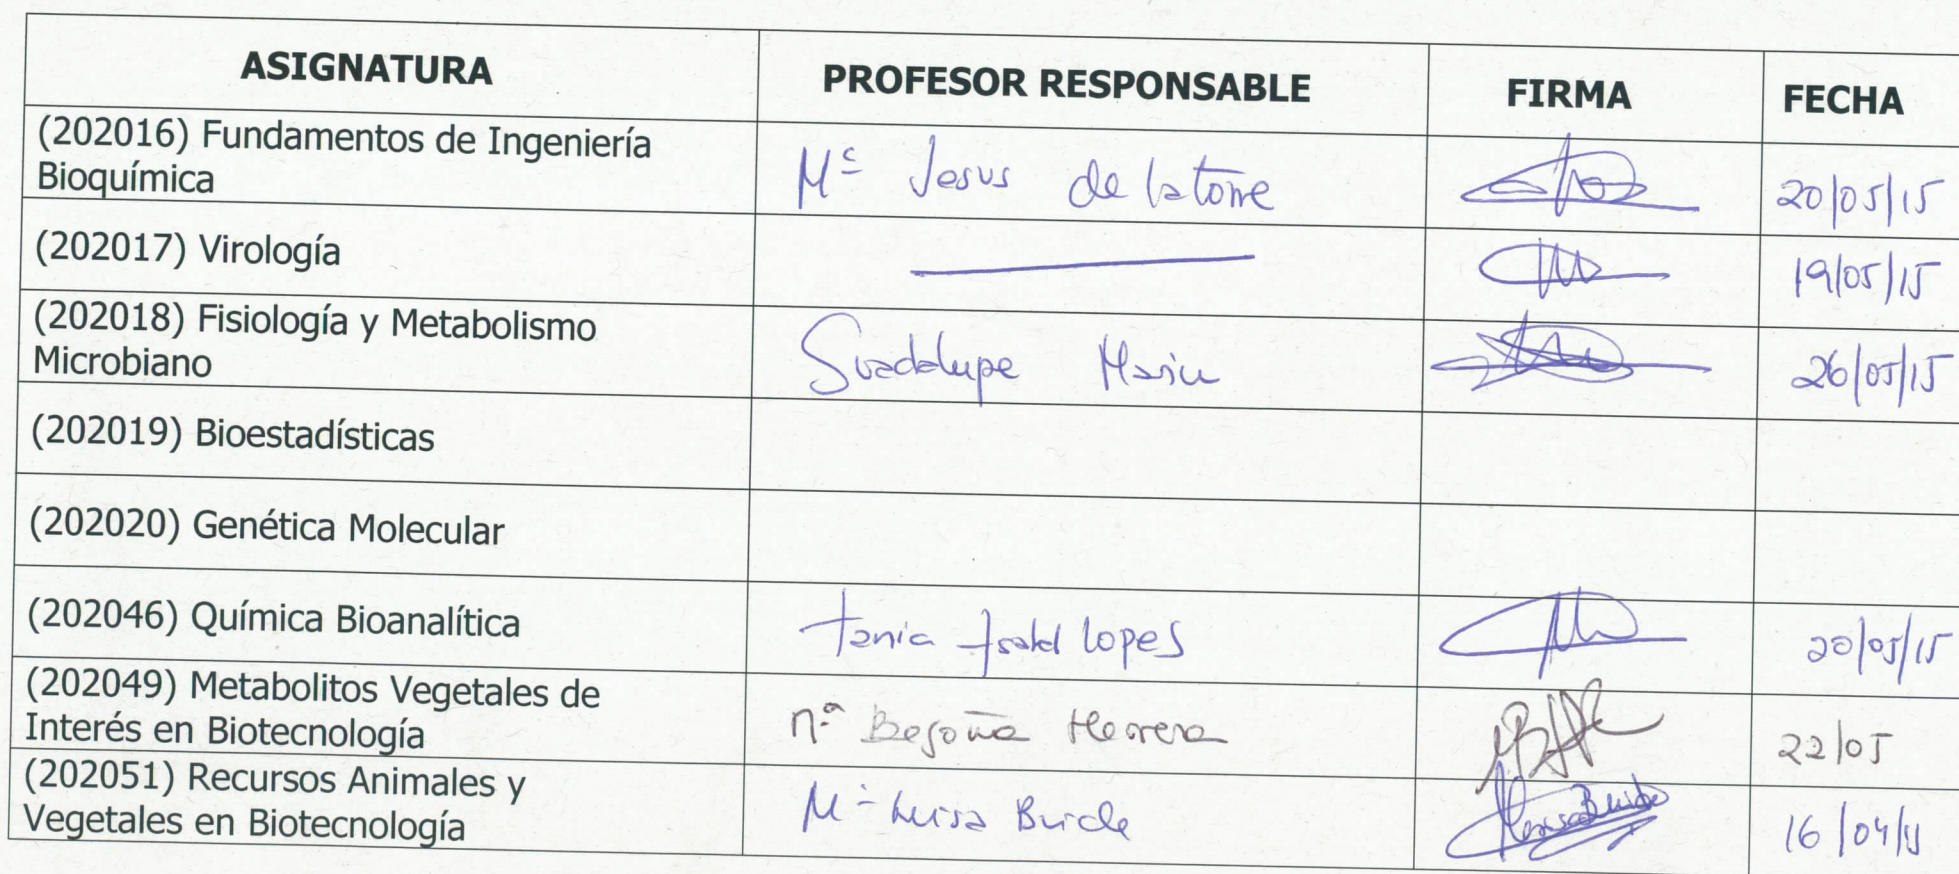 ASIGNATURA PROFESOR RESPONSABLE FIRMA FECHA
(202016) Fundamentos de Ingeniería
Bioquímica
Mª Jesus de la torre 20/05/15
(202017) Virología 19/05/15
(202018) Fisiología y Metabolismo
Microbiano
Guadalupe 26/05/15
(202019) Bioestadísticas
(202020) Genética Molecular
(202046) Química Bioanalítica
tania Isabel lopes 20/05/15
(202049) Metabolitos Vegetales de
Interés en Biotecnología
Mª Begoña Herrera 22/05
(202051) Recursos Animales y
Vegetales en Biotecnología
Mª Luisa 16/04/